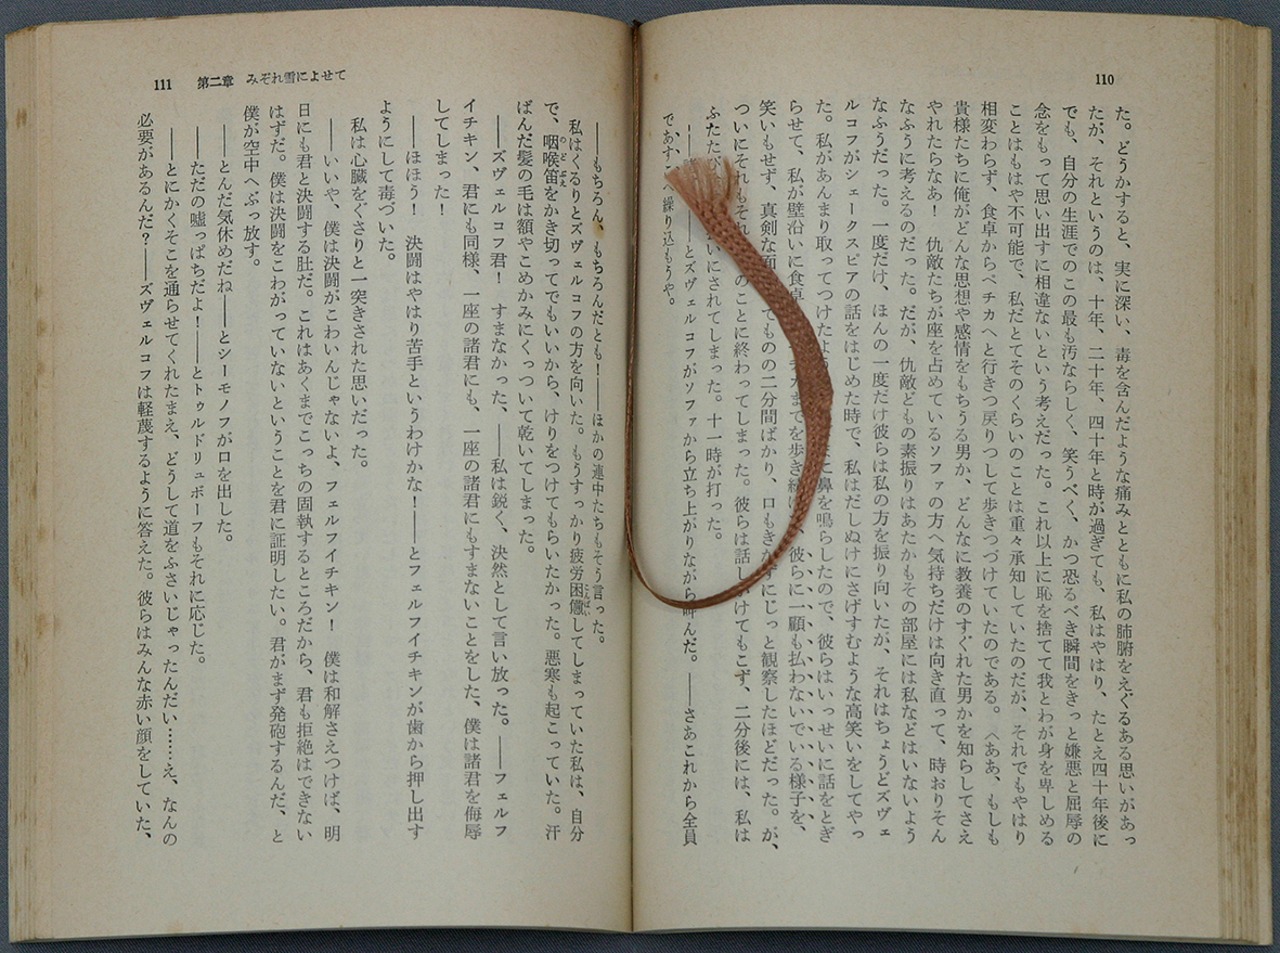 110
た。どうかすると、実に深い、毒を含んだような痛みとともに私の肺腑をえぐるある思いがあっ
たが、それというのは、十年、二十年、四十年と時が過ぎても、私はやはり、たとえ四十年後に
でも、自分の生涯でのこの最も汚ならしく、笑うべく、かつ恐るべき瞬間をきっと嫌悪と屈辱の
念をもって思い出すに相違ないという考えだった。これ以上に恥を捨てて我とわが身を卑しめる
ことはもはや不可能で、私だとてそのくらいのことは重々承知していたのだが、それでもやはり
相変わらず、食卓からペチカへと行きつ戻りつして歩きつづけていたのである。〈ああ、もしも
貴様たちに俺がどんな思想や感情をもちうる男か、どんなに教養のすぐれた男かを知らしてさえ
やれたらなあ！　仇敵たちが座を占めているソファの方へ気持ちだけは向き直って、時おりそん
なふうに考えるのだった。だが、仇敵どもの素振りはあたかもその部屋には私などはいないよう
なふうだった。一度だけ、ほんの一度だけ彼らは私の方を振り向いたが、それはちょうどズヴェ
ルコフがシェークスピアの話をはじめた時で、私はだしぬけにさげすむような高笑いをしてやっ
た。私があんまり取ってつけたよ に鼻を鳴らしたので、彼らはいっせいに話をとぎ
らせて、私が壁沿いに食卓 までを歩き 彼らに一顧も払わないでいる様子を、
笑いもせず、真剣な面 でものの二分間ばかり、口もきかずにじっと観察したほどだった。が、
ついにそれもそれ のことに終わってしまった。彼らは話しかけてもこず、二分後には、私は
ふたたび いにされてしまった。十一時が打った。
とズヴェルコフがソファから立ち上がりながら叫んだ。――さあこれから全員
で、あす へ繰り込もうや。
111　第二章　みぞれ雪によせて
――もちろん、もちろんだとも！――ほかの連中たちもそう言った。
私はくるりとズヴェルコフの方を向いた。もうすっかり疲労困憊してしまっていた私は、自分
で、咽喉笛をかき切ってでもいいから、けりをつけてもらいたかった。悪寒も起こっていた。汗
ばんだ髪の毛は額やこめかみにくっついて乾いてしまった。
――ズヴェルコフ君！　すまなかった、――私は鋭く、決然として言い放った。――フェルフ
イチキン、君にも同様、一座の諸君にも、一座の諸君にもすまないことをした、僕は諸君を侮辱
してしまった！
――ほほう！　決闘はやはり苦手というわけかな！――とフェルフイチキンが歯から押し出す
ようにして毒づいた。
私は心臓をぐさりと一突きされた思いだった。
――いいや、僕は決闘がこわいんじゃないよ、フェルフイチキン！　僕は和解さえつけば、明
日にも君と決闘する肚だ。これはあくまでこっちの固執するところだから、君も拒絶はできない
はずだ。僕は決闘をこわがっていないということを君に証明したい。君がまず発砲するんだ、と
僕が空中へぶっ放す。
――とんだ気休めだね――とシーモノフが口を出した。
――ただの嘘っぱちだよ！――とトゥルドリュボーフもそれに応じた。
――とにかくそこを通らせてくれたまえ、どうして道をふさいじゃったんだい……え、なんの
必要があるんだ？――ズヴェルコフは軽蔑するように答えた。彼らはみんな赤い顔をしていた、